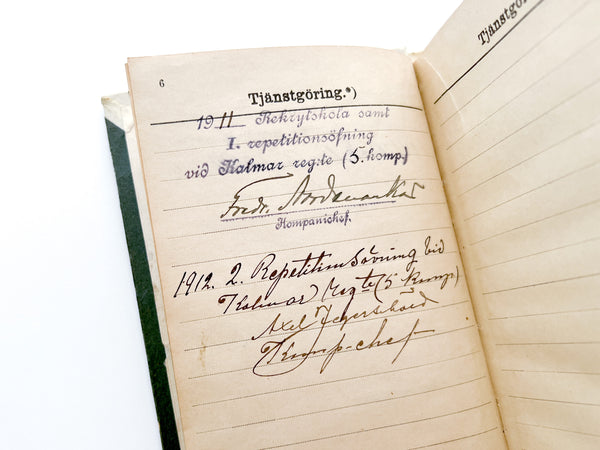 6
Tjänstgöring.*)
1911 Rekrytskola samt
I. repetitionsöfning
vid Kalmar reg:te (5. komp.)
Fredr.
Kompanichef.
1912. 2. Repetitionsövning vid
Kalmar Regte (5 komp)
Axel
Komp-chef
Tjänstgö